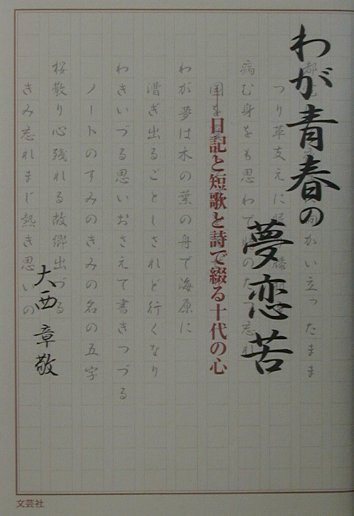 わが青春の
夢恋苦
日記と短歌と詩で綴る十代の心
大西章敬
つり革支えに
病む身をも思わで
わが夢は木の葉の舟で海原に
漕ぎ出るごとしされど行くなり
わきいづる思いおさえて書きつづる
ノートのすみのきみの名の五字
桜散り心残れる故郷出づる
きみ忘れまじ熱き思いの
文芸社